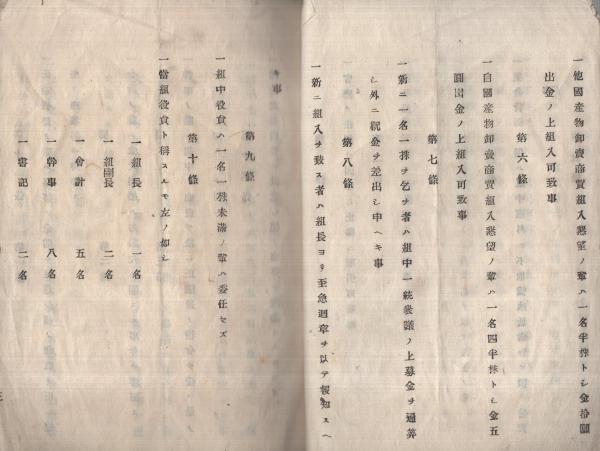 一他國産物卸賣商賣組入懇望ノ輩ハ一名半株トシ金拾圓
出金ノ上組入可致事
第六條
一自國産物卸賣商賣組入懇望ノ輩ハ一名四半株トシ金五
圓出金ノ上組入可致事
第七條
一新ニ一名一株ヲ乞フ者ハ組中一統衆議ノ上募金ヲ通算
シ外ニ祝金ヲ差出シ申ヘキ事
第八條
一新ニ組入ヲ致ス者ハ組長ヨリ至急廻章ヲ以テ報知スヘ
キ事
第九條
一組中役員ハ一名一株未滿ノ輩ハ委任セズ
第十條
一當組役員ト稱スルモ左ノ如シ
一組長 一名
一組副長 二名
一會計 五名
一幹事 八名
一書記 二名
三